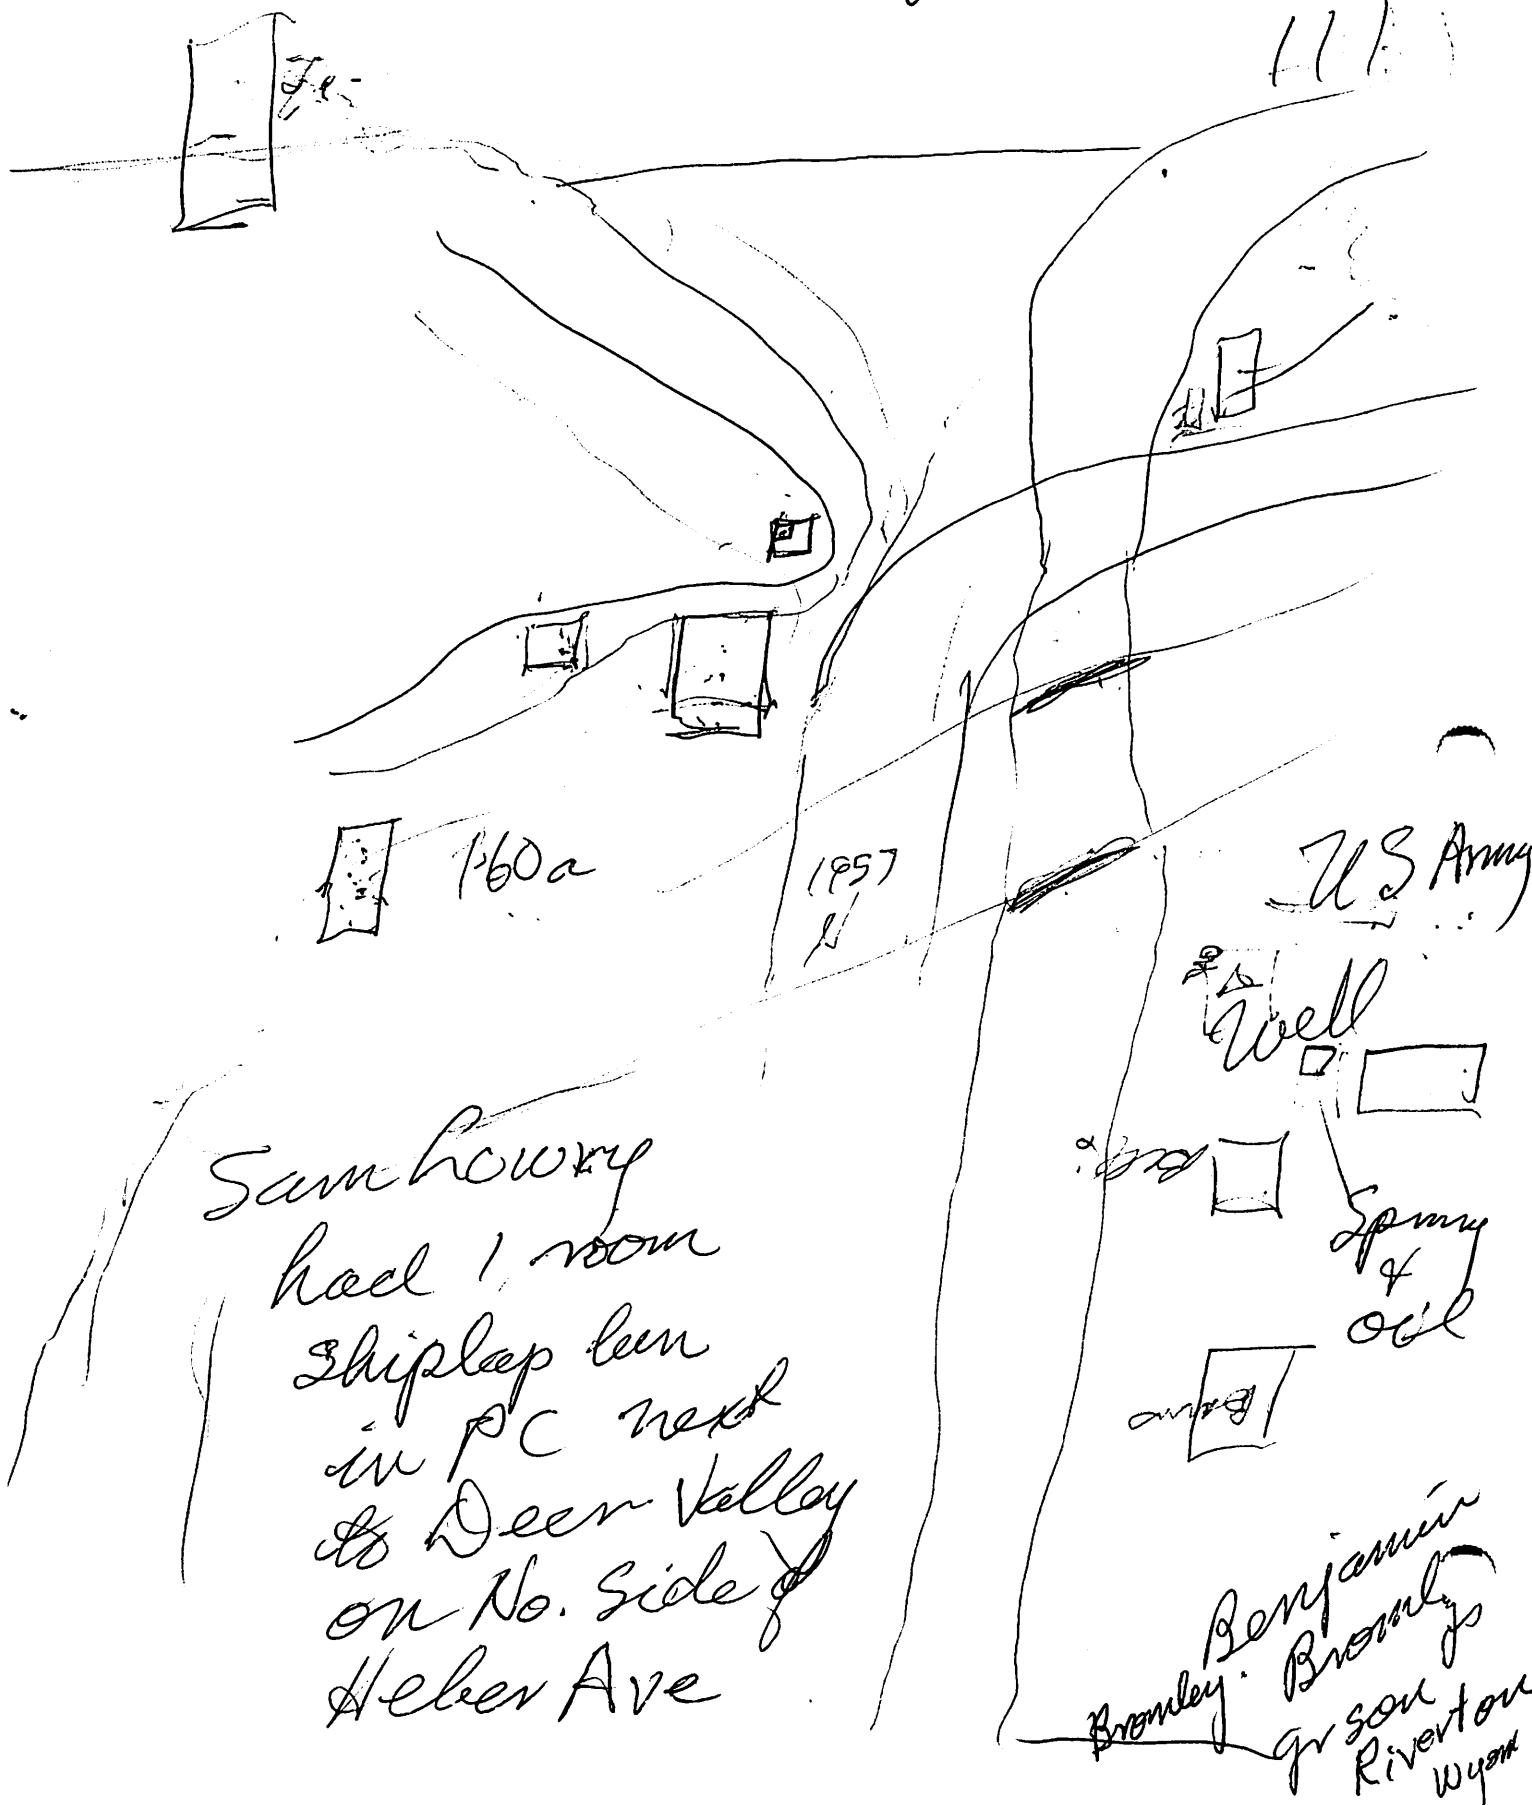 160a
1857
N
US Army
Well
Spring
&
oil
Sam Lowry
had 1 room
shiplap
in PC next
to Deer Valley
on No. Side of
Heber Ave
Benjamin
Bromley. Bromlys
gr son
Riverton
Wyom